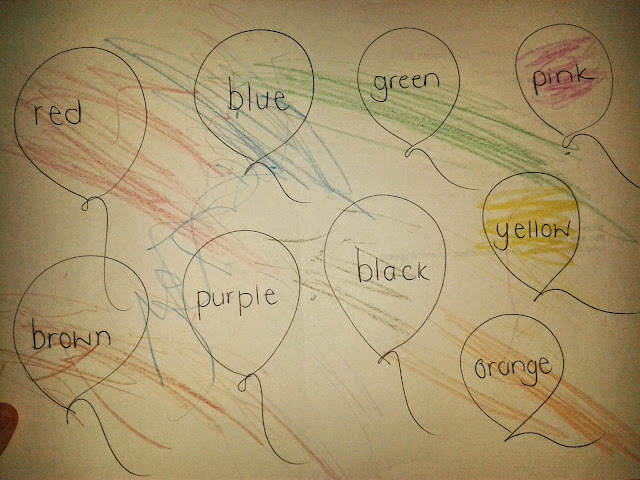 red
blue
green
pink
yellow
brown
purple
black
orange